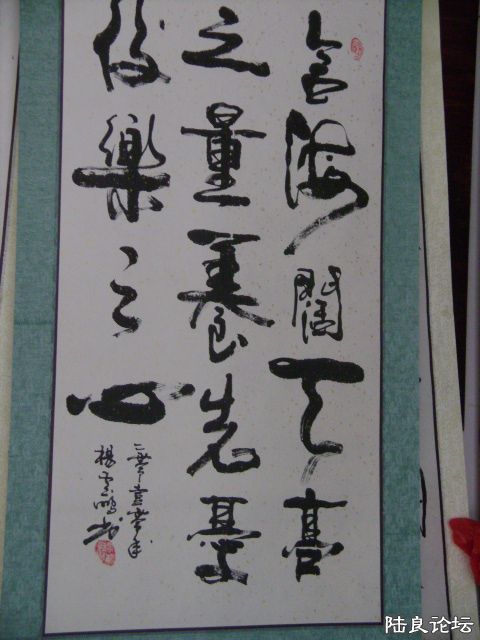 含海闊天高
之量養先憂
後樂之心
二零壹零年
楊雲鵬书
陆良论坛